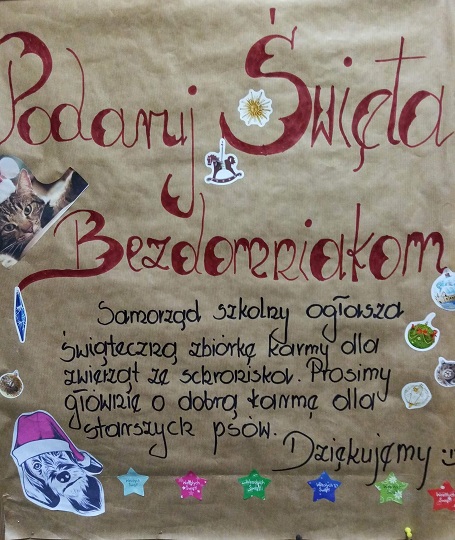 Podaruj Święta
Bezdomniakom
Samorząd szkolny ogłasza
świąteczną zbiórkę karmy dla
zwierząt ze schroniska. Prosimy
głównie o dobrą karmę dla
starszych psów.
Dziękujemy :)